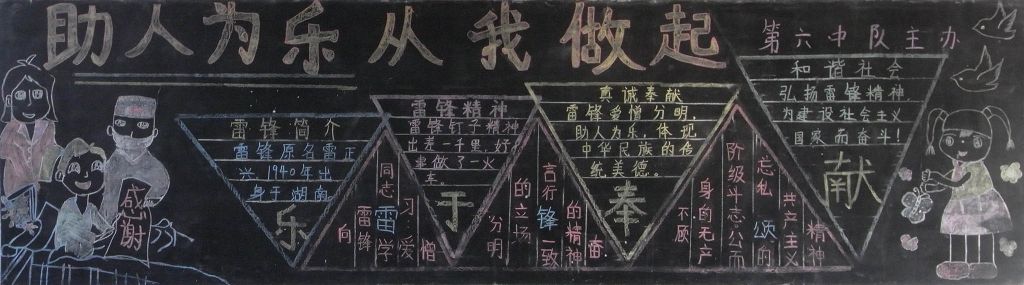 助人为乐从我做起
第六中队主办
感谢
雷锋简介
雷锋原名雷正
兴1940年出
身于湖南
乐
向
雷锋
同志雷学
习爱
憎
雷锋精神
雷锋钉子精神
出差一千里,好
事做了一火
车。
于
分明
的立场
言行锋一致
的精神
奋
真诚奉献
雷锋爱憎分明,
助人为乐,体现
中华民族的传
统美德。
奉
不顾
身的无产
阶级斗志公而
忘私颂的
共产主义
精神
和谐社会
弘扬雷锋精神,
为建设社会主义
国家而奋斗!
献